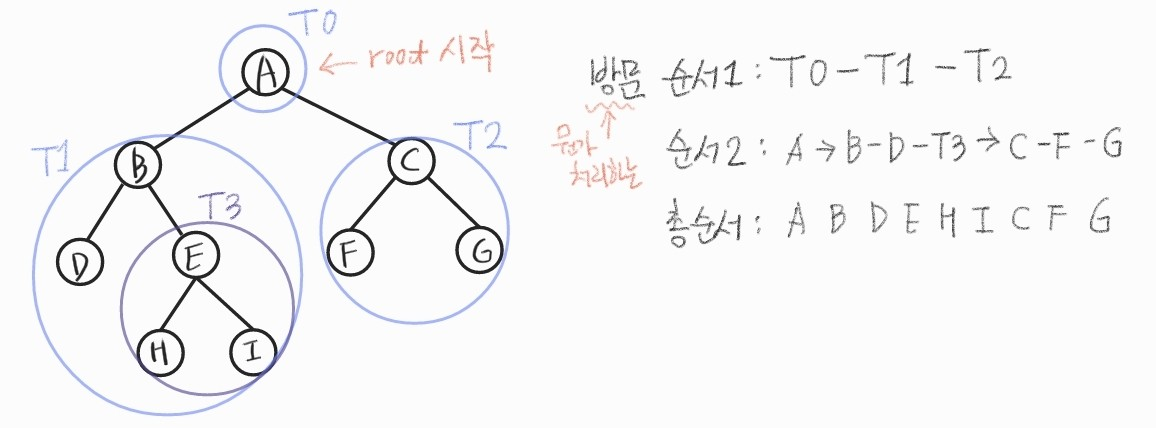 T0
A
← root 시작
T1
B
T2
C
T3
D
E
F
G
H
I
방문 순서1 : T0 - T1 - T2
뭔가
처리하는
순서2 : A → B - D - T3 → C - F - G
총순서 : A B D E H I C F G